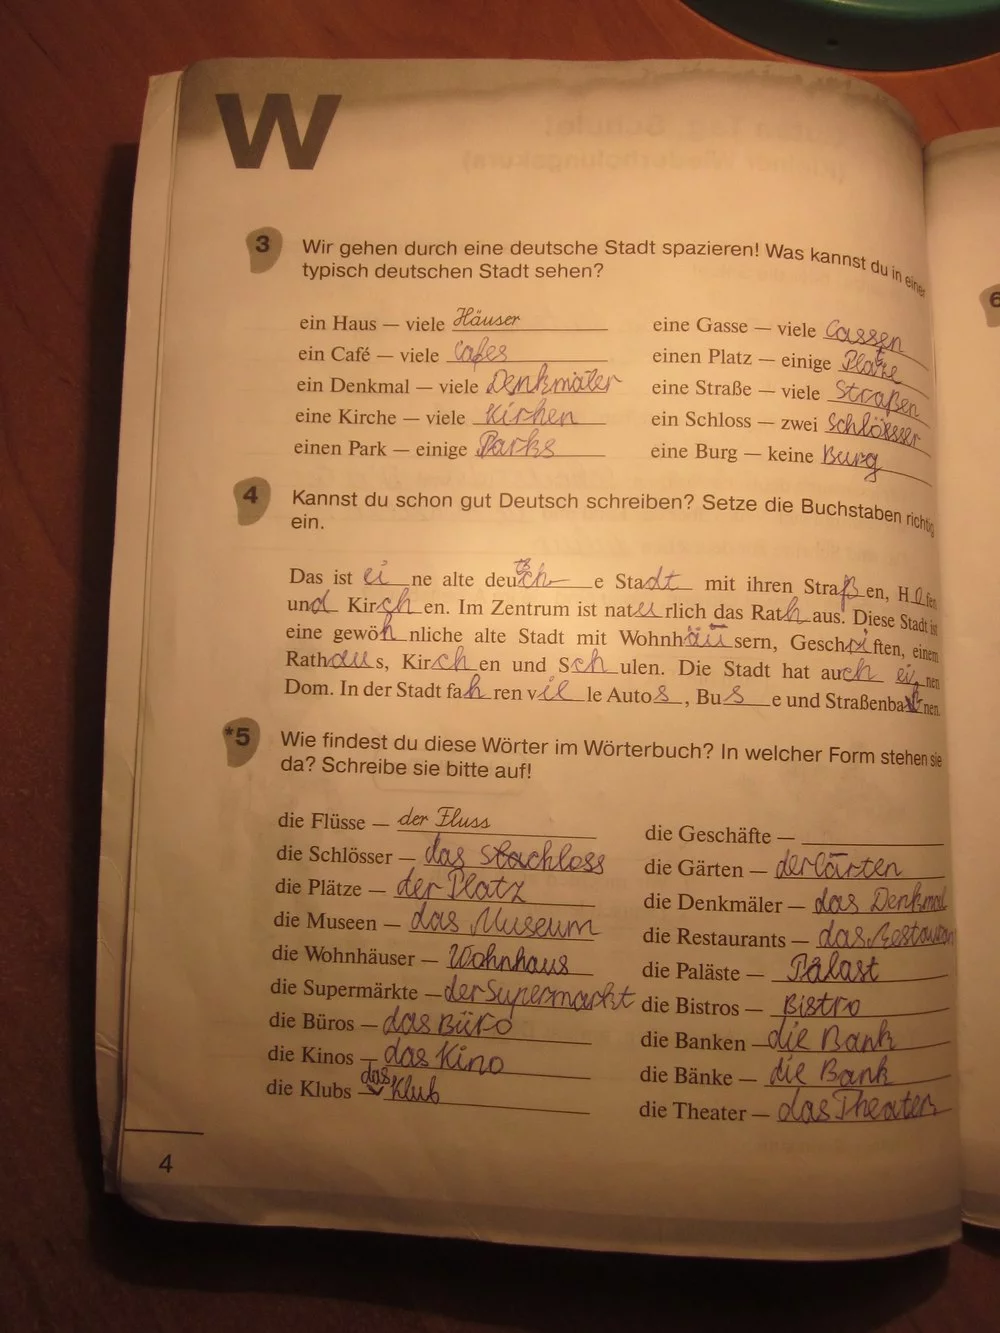 W
3 Wir gehen durch eine deutsche Stadt spazieren! Was kannst du in einer
typisch deutschen Stadt sehen?
ein Haus — viele Häuser
ein Café — viele Cafes
ein Denkmal — viele Denkmäler
eine Kirche — viele Kirhen
einen Park — einige Parks
eine Gasse — viele Gassen
einen Platz — einige Platze
eine Straße — viele Straßen
ein Schloss — zwei Schlösser
eine Burg — keine Burg
4 Kannst du schon gut Deutsch schreiben? Setze die Buchstaben richtig
ein.
Das ist ei ne alte deutsch e Stadt mit ihren Straßen, H fen
und Kirch en. Im Zentrum ist nat rlich das Rathaus. Diese Stadt ist
eine gewöhnliche alte Stadt mit Wohnhäusern, Gesch ften, einem
Rathaus, Kirchen und Schulen. Die Stadt hat auch einen
Dom. In der Stadt fahren v le Autos, Buse und Straßenbahnen.
*5 Wie findest du diese Wörter im Wörterbuch? In welcher Form stehen sie
da? Schreibe sie bitte auf!
die Flüsse — der Fluss
die Schlösser — das Schloss
die Plätze — der Platz
die Museen — das Museum
die Wohnhäuser — Wohnhaus
die Supermärkte — der Supermarkt
die Büros — das Büro
die Kinos — das Kino
die Klubs — das Klub
die Geschäfte —
die Gärten — der Gärten
die Denkmäler — das Denkmal
die Restaurants — das
die Paläste — Pälast
die Bistros — Bistro
die Banken — die Bank
die Bänke — die Bank
die Theater — das Theater
4
6